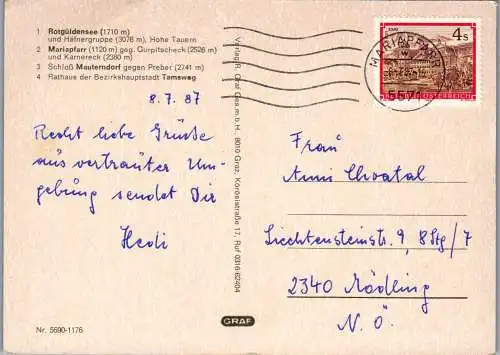 1 Rotgüldensee (1710 m)
und Hafnergruppe (3076 m), Hohe Tauern
2 Mariapfarr (1120 m) geg. Gurpitscheck (2526 m)
und Karnereck (2380 m)
3 Schloß Mauterndorf gegen Preber (2741 m)
4 Rathaus der Bezirkshauptstadt Tamsweg
8.7.87
Recht liebe Grüsse
aus vertrauter Um-
gebung sendet Dir
Hedi
Nr. 5690-1176
Verlag R. Graf Ges.m.b.H., 8010 Graz, Körösistraße 17, Ruf 0316/62404
GRAF
4 S
MARIAPFARR
5571
ÖSTERREICH
Frau
Anni Chvatal
Liechtensteinstr. 9, 8 Stg/7
2340 Mödling
N.Ö.